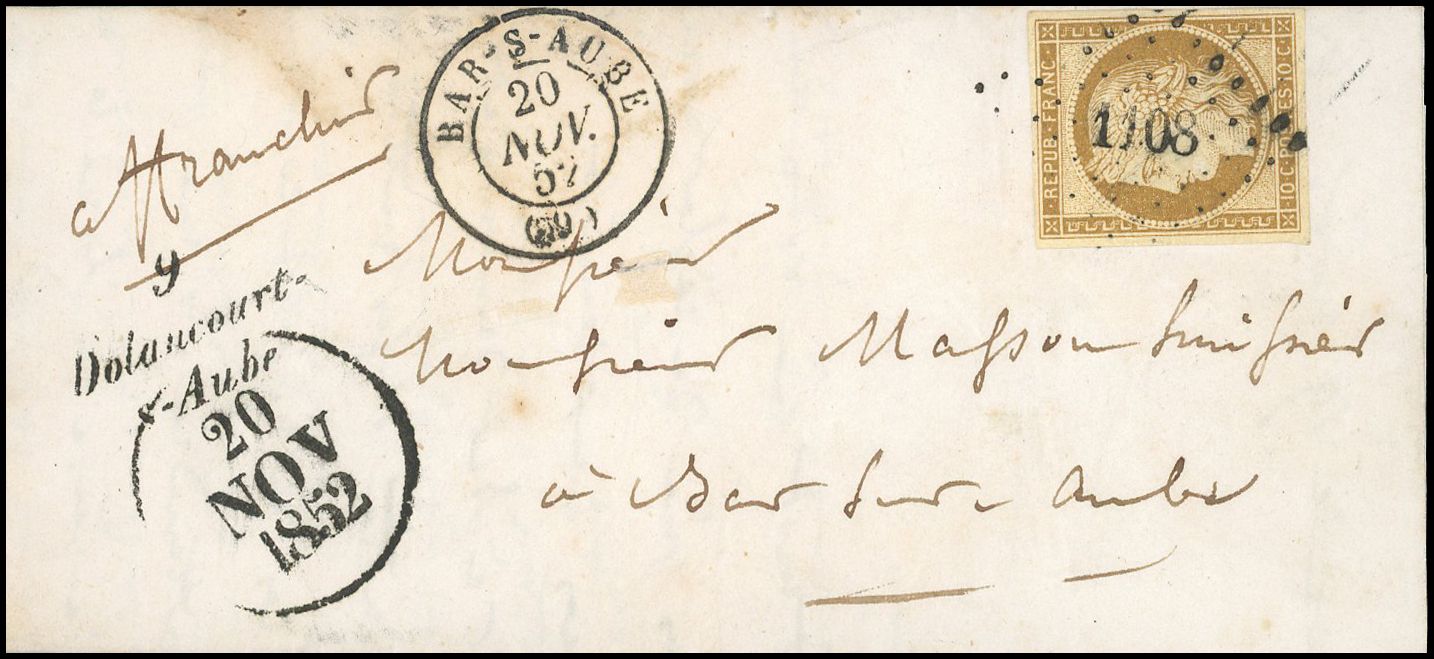 affranchie
BAR-S-AUBE
20
NOV.
52
REPUB·FRANC·
10·C·POSTES·10·C·
1108
9
Dolancourt-
s-Aube
20
NOV
1852
Monsieur
Monsieur Masson huissier
à Bar sur aube